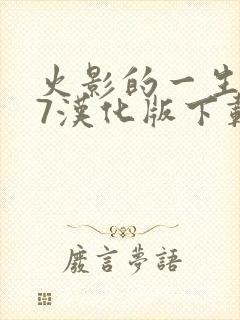 火影的一生
7漢化版下載
廢言夢語